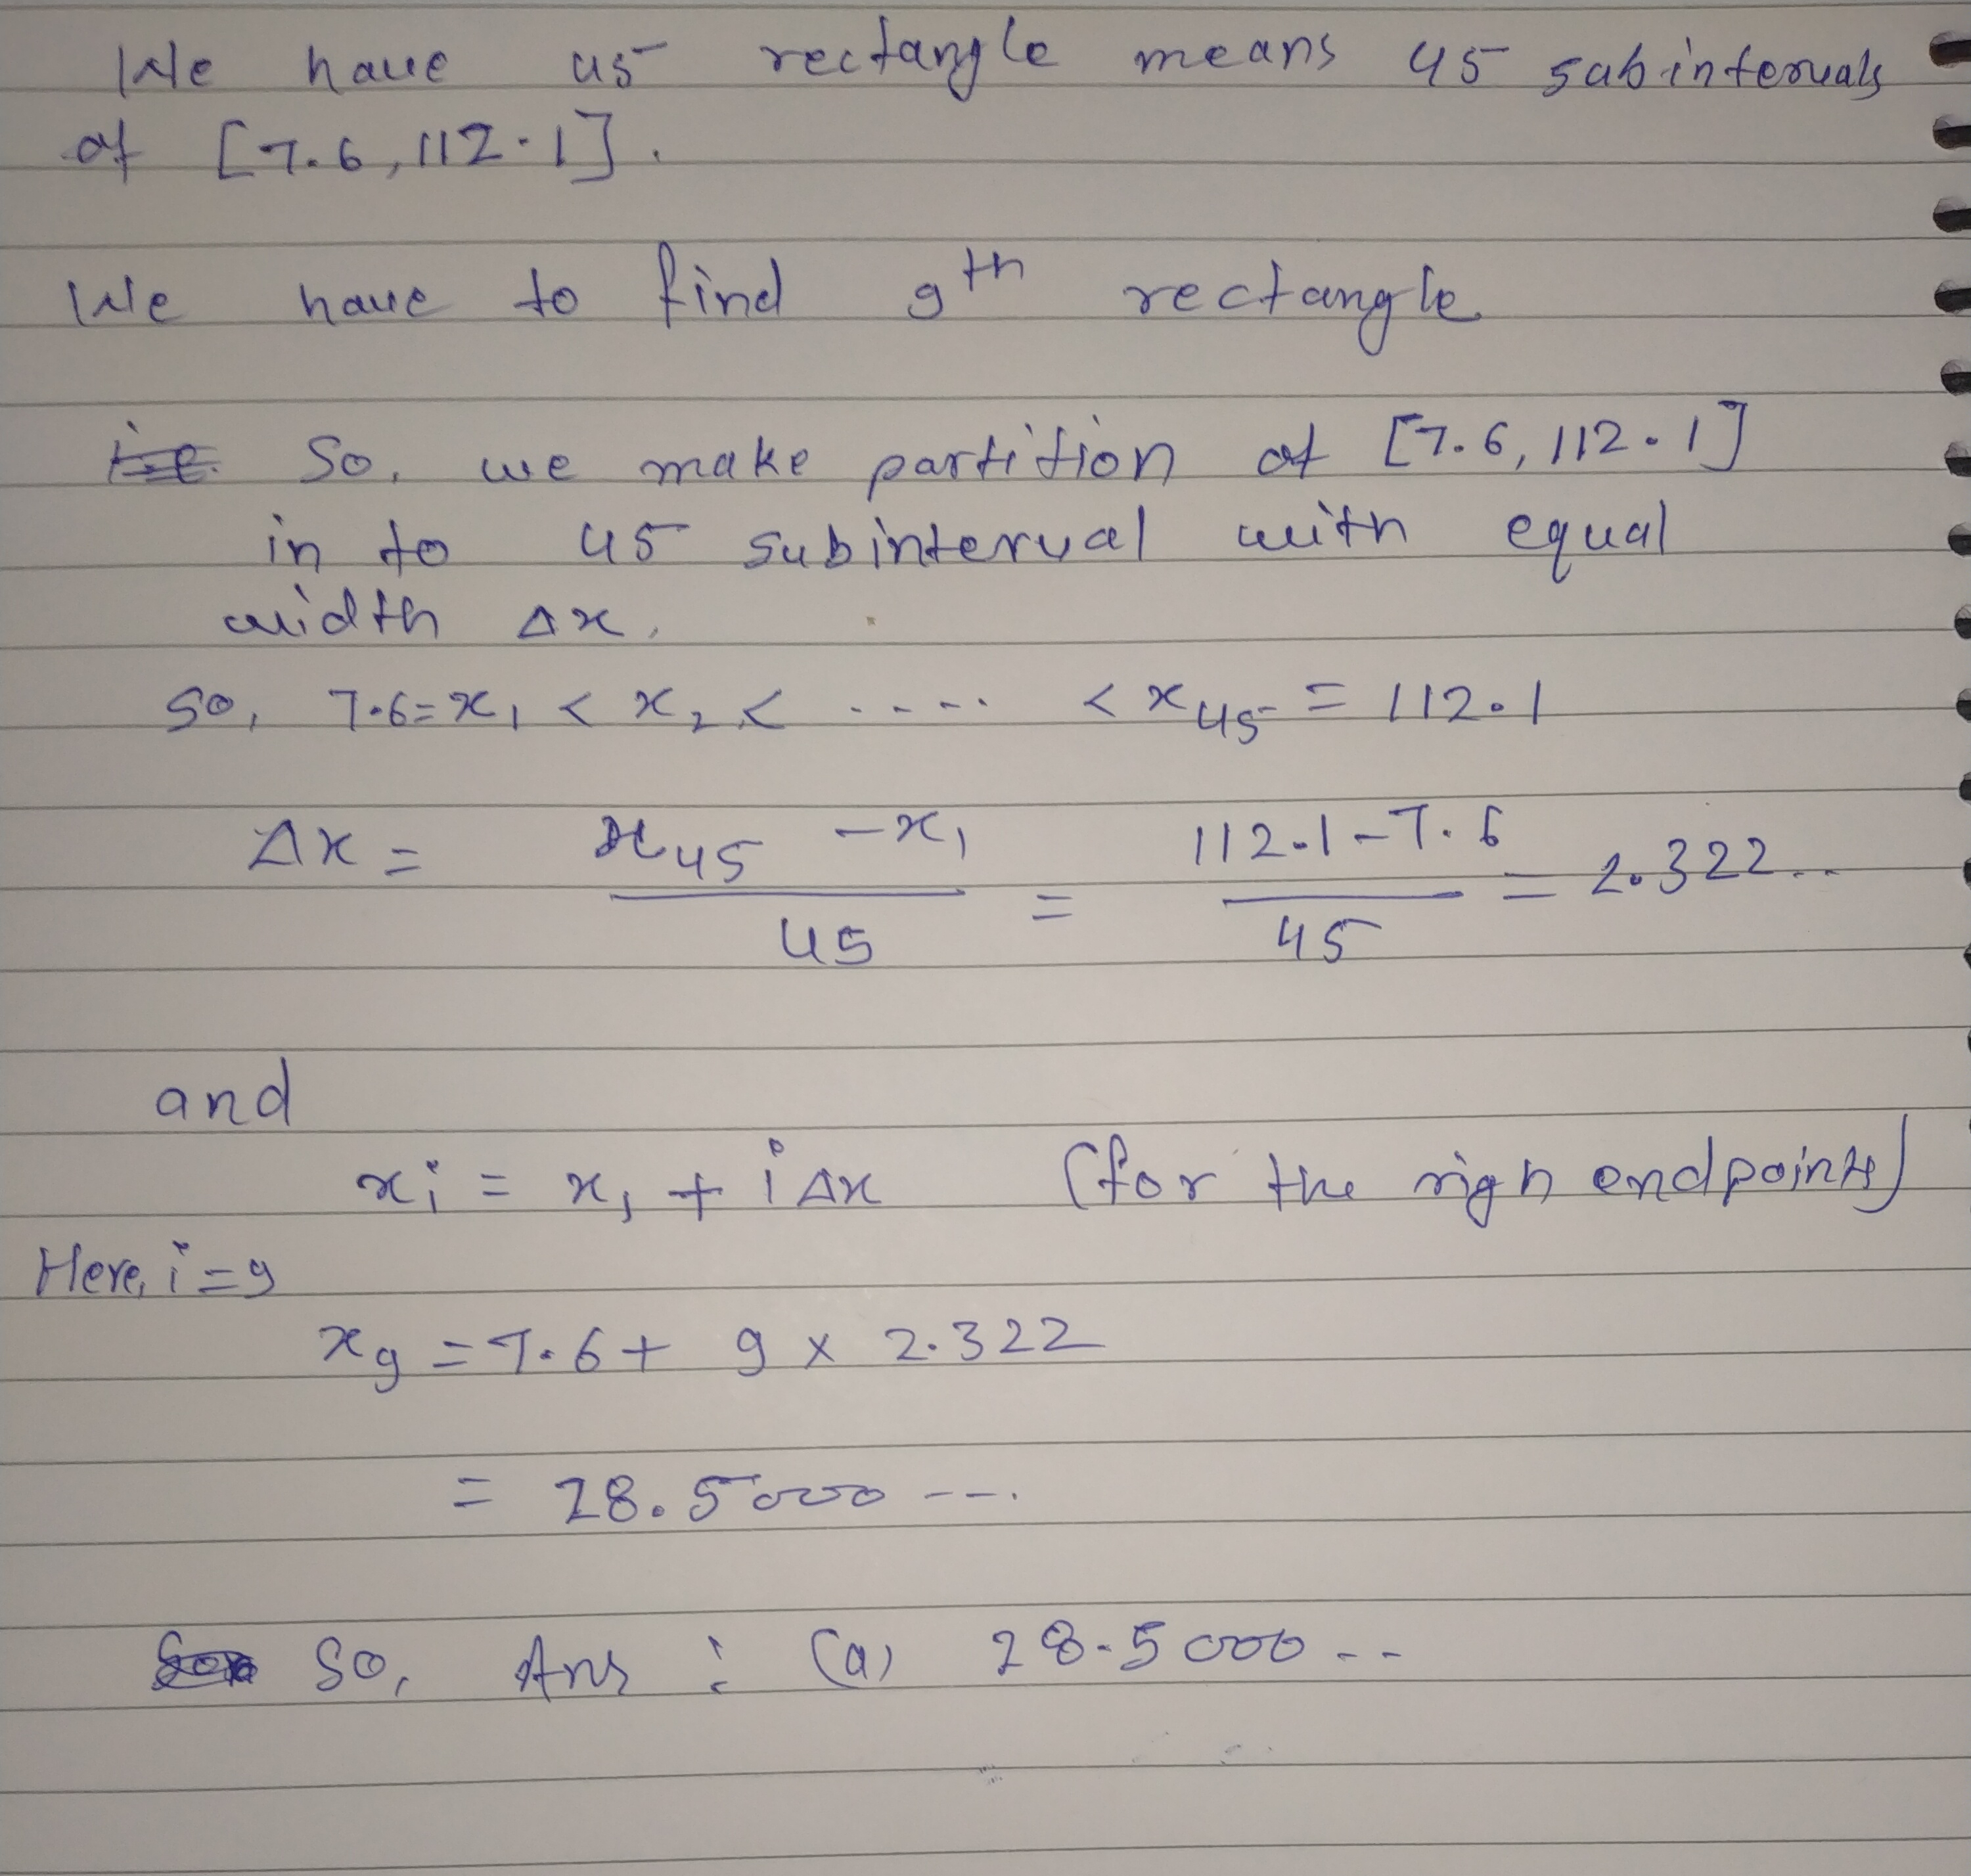 We have 45 rectangle means 45 subintervals
of [7.6, 112.1].
We have to find 9th rectangle
i.e. So, we make partition of [7.6, 112.1]
in to 45 subinterval with equal
width Δx.
So, 7.6 = x₁ < x₂ < ..... < x₄₅ = 112.1
Δx = (x₄₅ - x₁) / 45 = (112.1 - 7.6) / 45 = 2.322..
and
xᵢ = x₁ + iΔx (for the righ endpoints)
Here, i = 9
x₉ = 7.6 + 9 × 2.322
= 28.5000 ---.
So, Ans : (a) 28.5000 --